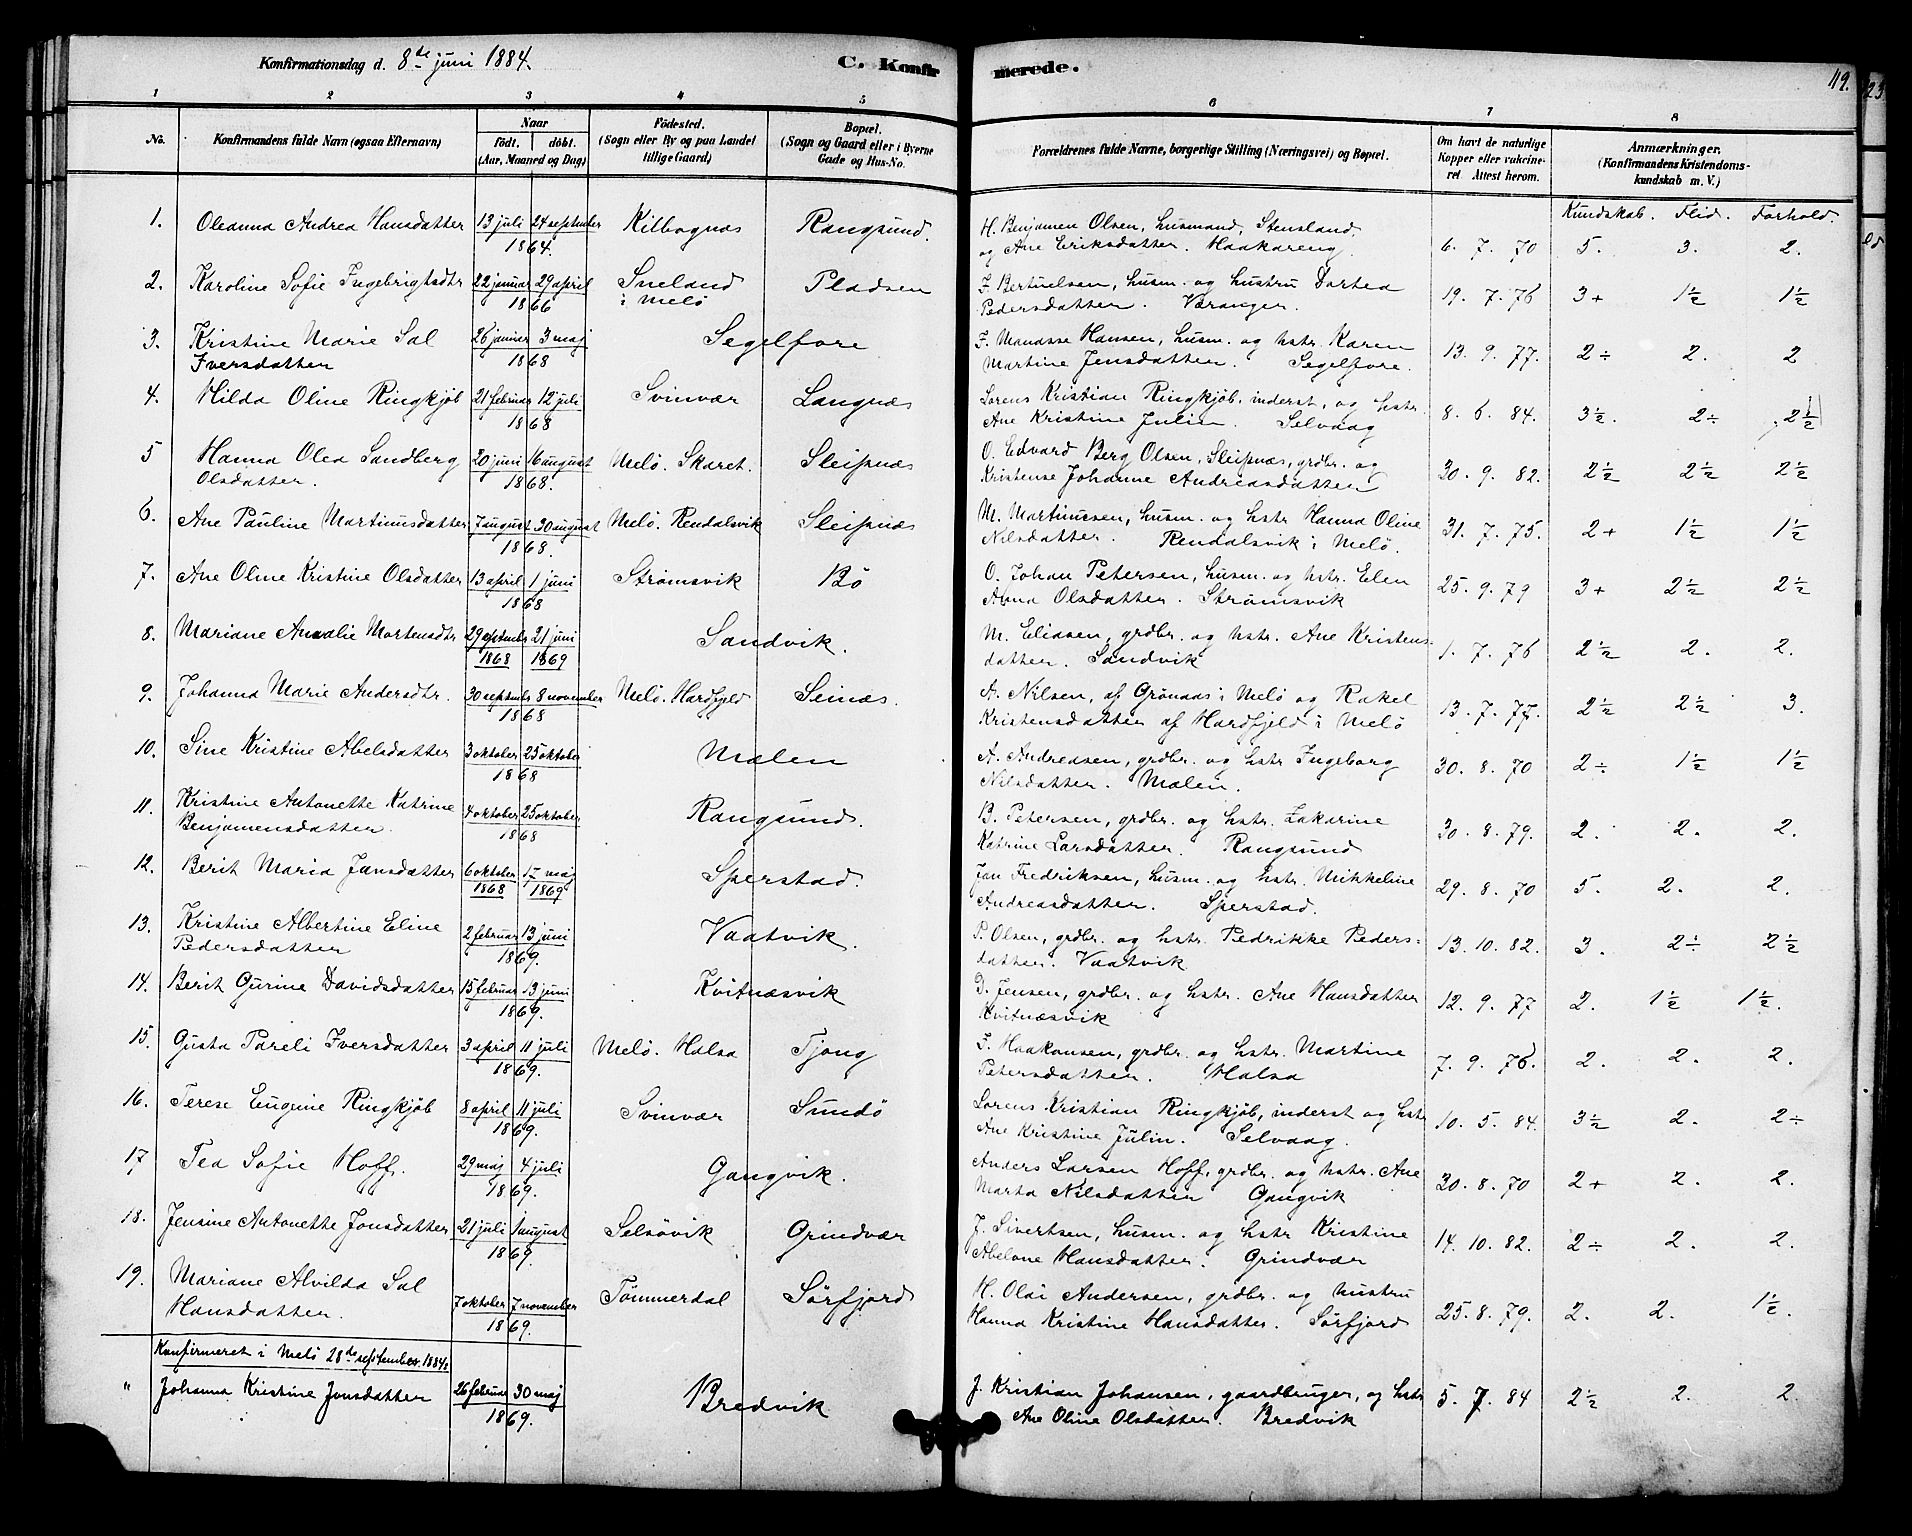 Konfirmationsdag d. 8de juni 1884.
C. Konfirmerede.
119.
1 2 3 4 5 6 7 8
No.
Konfirmandens fulde Navn (ogsaa Efternavn)
Naar
født. døbt.
(Aar, Maaned og Dag)
Fødested.
(Sogn eller By og paa Landet
tillige Gaard)
Bopæl.
(Sogn og Gaard eller i Byerne
Gade og Hus-No.
Forældrenes fulde Navne, borgerlige Stilling (Næringsvei) og Bopæl.
Om havt de naturlige
Kopper eller vakcine-
ret Attest herom.
Anmærkninger.
(Konfirmandens Kristendoms-
kundskab m. V.)
Kundskab. Flid. Forhold.
1. Oleanna Andrea Hansdatter 13 juli 24 september 1864. Kilbognæs Rangsund. H. Benjamen Olsen, husmand, Stensland,
og Ane Eriksdatter. Haakareng. 6. 7. 70 5. 3. 2.
2. Karoline Sofie Ingebrigtsdtr 22 januar 29 april 1866 Sneland Pladsen I. Bertuelsen, husm. og hustru Dortea
i Melö Pedersdatter. Varanger. 19. 7. 76 3+ 1½ 1½
3. Kristine Marie Sal 26 januar 3 maj 1868 Segelfore F. Manasse Hansen, husm. og hstr. Karen
Iversdatter Martine Jensdatter. Segelfore. 13. 9. 77. 2÷ 2. 2
4. Hilda Oline Ringkjöb 21 februar 12 juli 1868 Svinvær Langnæs Lorens Kristian Ringkjöb, inderst, og hstr.
Ane Kristine Julin. Selvaag 8. 6. 84. 3½. 2÷ 2½
5 Hanna Olea Sandberg 20 juni 16 august 1868. Melö. Skaret. Sleipnæs O. Edvard Berg Olsen, Sleipnæs, grdbr. og
Olsdatter. Kristense Johanne Andreasdatter 30. 9. 82. 2½ 2½ 2½
6. Ane Pauline Martinusdatter 7 august 30 august 1868. Melö. Rendalsvik Sleipnæs M. Martinusen, husm. og hstr Hanna Oline
Nilsdatter. Rendalsvik i Melö. 31. 7. 75. 2+ 1½ 1½
7. Ane Oline Kristine Olsdatter 13 april 1 juni 1868 Strömsvik Bö O. Johan Petersen, husm. og hstr. Elen
Anna Olsdatter. Strömsvik 25. 9. 79 3+ 2½ 2½
8. Mariane Amalie Mortensdtr 29 septmbr 1868 21 juni 1869 Sandvik. M. Eliasen, grdbr. og hstr. Ane Kristens-
datter. Sandvik 1. 7. 76 2½ 2. 2.
9. Johanna Marie Andersdtr. 30 septmbr 8 november 1868 Melö. Hardfjeld Seinæs. A. Nilsen, af Grönaas i Melö og Rakel
Kristensdatter af Hardfjeld i Melö 13. 7. 77. 2½ 2½ 3.
10. Sine Kristine Abelsdatter 3 oktober 25 oktober 1868 Mælen A. Andreasen, grdbr. og hstr Ingeborg
Nilsdatter. Mælen. 30. 8. 70 2÷ 1½ 1½
11. Kristine Antonette Katrine 4 oktober 25 oktober 1868 Rangsund. B. Petersen, grdbr. og hstr. Zakarine
Benjamensdatter. Katrine Larsdatter. Rangsund 30. 8. 79. 2. 2. 2.
12. Berit Maria Jansdatter 6 oktober 1868 17 maj 1869 Sperstad. Jan Fredriksen, husm. og hstr. Mikkeline
Andreasdatter. Sperstad. 29. 8. 70 5. 2. 2.
13. Kristine Albertine Eline 2 februar 13 juni 1869. Vaatvik. P. Olsen, grdbr. og hstr. Pedrikke Peders-
Pedersdatter datter. Vaatvik 13. 10. 82. 3. 2÷ 2½
14. Berit Gurine Davidsdatter 15 februar 13 juni 1869. Kvitnæsvik D. Jensen, grdbr. og hstr. Ane Hansdatter
Kvitnæsvik 12. 9. 77 2. 1½ 1½.
15. Gusta Pareli Iversdatter 3 april 11 juli 1869. Melö. Halsa Tjong I. Haakonsen, grdbr. og hstr. Martine
Petersdatter. Halsa 7. 9. 76. 2. 2. 2.
16. Terese Eugenie Ringkjöb 8 april 11 juli 1869. Svinvær Sundö Lorens Kristian Ringkjöb, inderst og hstr
Ane Kristine Julin. Selvaag. 10. 5. 84. 3½ 2. 2÷
17. Tea Sofie Hoff. 29 maj 4 juli 1869. Gangvik. Anders Larsen Hoff, grdbr. og hstr. Ane
Marta Nilsdatter Gangvik 30. 8. 70 2+ 2. 2.
18. Jensine Antonette Jonsdatter 21 juli 1 august 1869. Selsövik Grindvær J. Sivertsen, husm. og hstr Kristine
Abelone Hansdatter. Grindvær 14. 10. 82. 2÷ 2. 2.
19. Mariane Alvilda Sal 7 oktober 7 november 1869. Tömmerdal Sörfjord H. Olai Andersen, grdbr. og hustru
Hansdatter. Hanna Kristine Hansdatter. Sörfjord 25. 8. 79. 2. 2. 1½.
Konfirmeret i Melö 28de september 1884:
" Johanna Kristine Jonsdatter 26 februar 30 maj 1869. Bredvik J. Kristian Johansen, gaardbruger, og hstr
Ane Oline Olsdatter. Bredvik 5. 7. 84 2½ 2. 2.